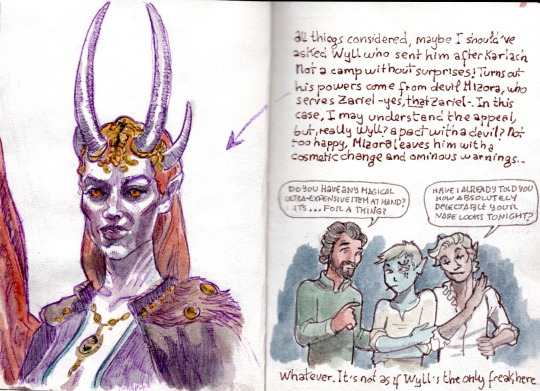 all things considered, maybe I should've
asked Wyll who sent him after Karlach
Not a camp without surprises! Turns out
his powers come from devil Mizora, who
serves Zariel -yes, that Zariel-. In this
case, I may understand the appeal,
but, really Wyll? a pact with a devil? Not
too happy, Mizora leaves him with a
cosmatic change and ominous warnings..
DO YOU HAVE ANY MAGICAL
ULTRA-EXPENSIVE ITEM AT HAND?
IT'S... FOR A THING?
HAVE I ALREADY TOLD YOU
HOW ABSOLUTELY
DELECTABLE YOUR
NAPE LOOKS TONIGHT?
Whatever. It's not as if Wyll's the only freak here